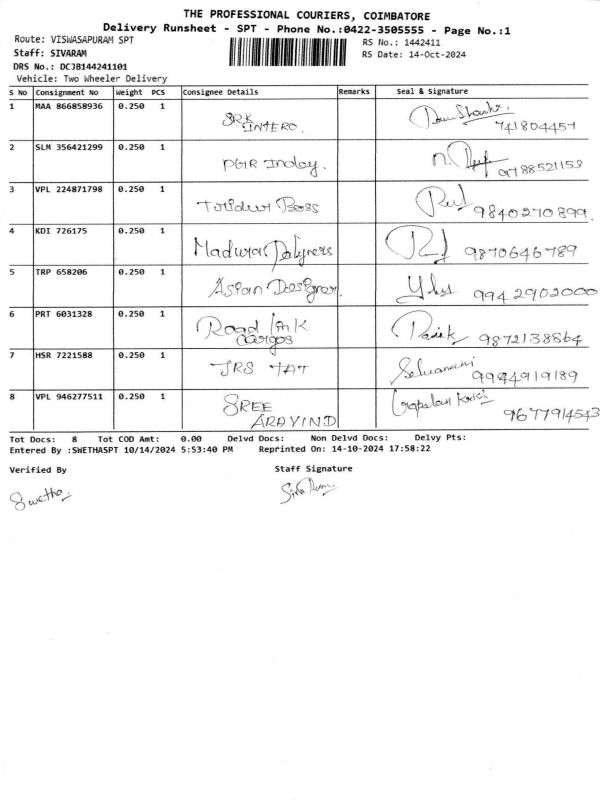 THE PROFESSIONAL COURIERS, COIMBATORE
Delivery Runsheet - SPT - Phone No.:0422-3505555 - Page No.:1
Route: VISWASAPURAM SPT RS No.: 1442411
Staff: SIVARAM RS Date: 14-Oct-2024
DRS No.: DCJB144241101
Vehicle: Two Wheeler Delivery
S No Consignment No Weight PCS Consignee Details Remarks Seal & Signature
1 MAA 866858936 0.250 1 SRK INTERO. 741804457
2 SLM 356421299 0.250 1 PGR Inday. 9788521153
3 VPL 224871798 0.250 1 Boss 9840270899.
4 KDI 726175 0.250 1 Madura 9870646789
5 TRP 658206 0.250 1 Asian Designer. 9942902000
6 PRT 6031328 0.250 1 Road link cargos 9872138864
7 HSR 7221588 0.250 1 JRS TAT Selvamani 9944919189
8 VPL 946277511 0.250 1 SREE ARAVIND Gopalan 9677914543
Tot Docs: 8 Tot COD Amt: 0.00 Delvd Docs: Non Delvd Docs: Delvy Pts:
Entered By :SWETHASPT 10/14/2024 5:53:40 PM Reprinted On: 14-10-2024 17:58:22
Verified By Staff Signature
Swetha. SivaRam.